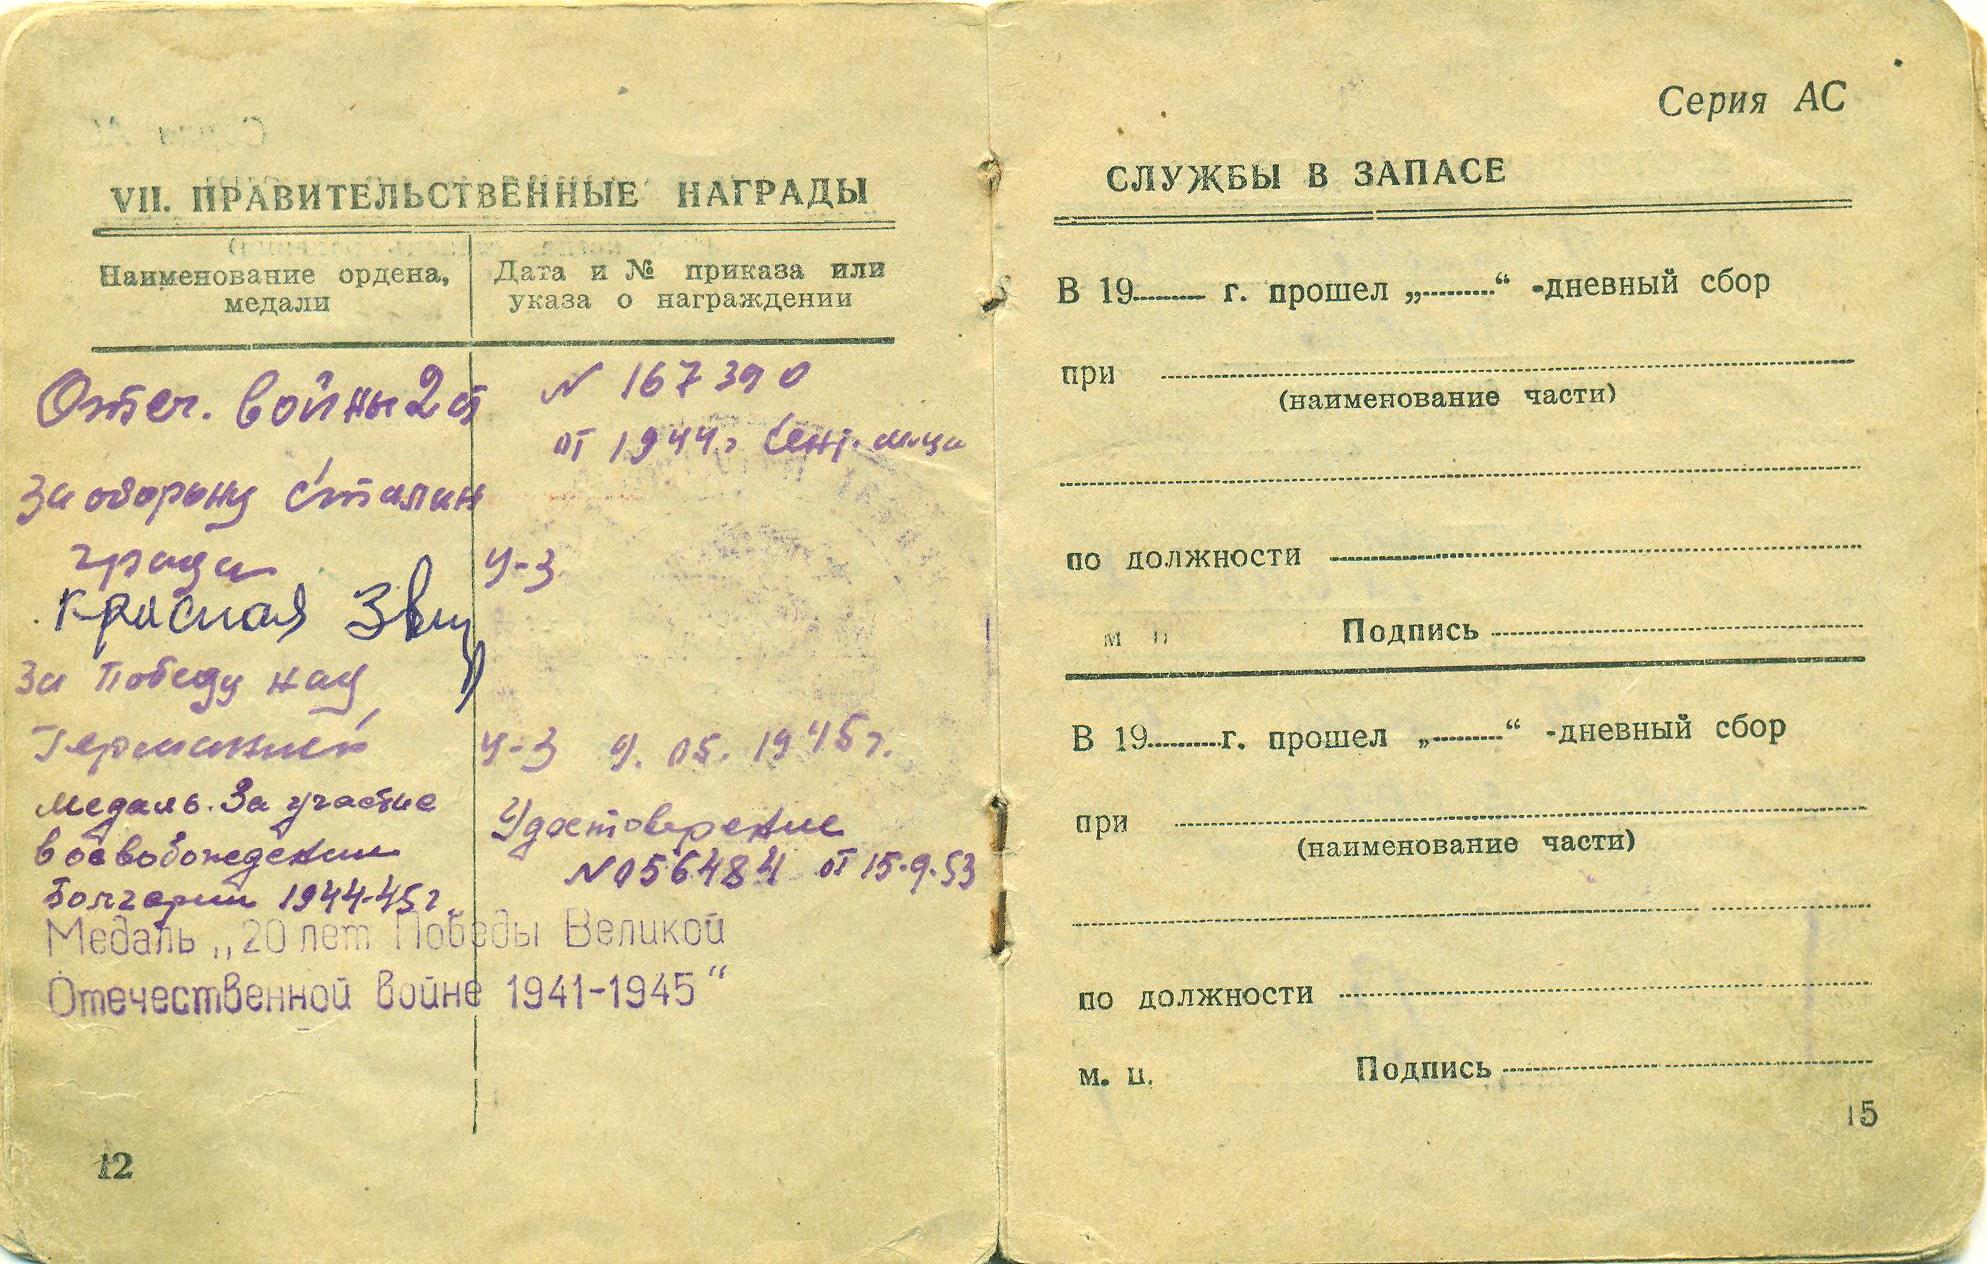 VII. ПРАВИТЕЛЬСТВЕННЫЕ НАГРАДЫ
Наименование ордена, медали
Дата и № приказа или указа о награждении
Отеч. войны 2 ст
N 167390
от 1944 г Сент. м-ца
За оборону Сталин
града
У-3
Красная Звезд
За Победу над
Германией
У-3 9.05.1945г.
Медаль. За участие
в освобождении
Болгарии 1944-45г.
Удостоверение
N 056484 от 15.9.53
Медаль „20 лет Победы Великой
Отечественной войне 1941-1945“
12
Серия АС
СЛУЖБЫ В ЗАПАСЕ
В 19 г. прошел „ “ -дневный сбор
при
(наименование части)
по должности
М П Подпись
В 19 г. прошел „ “ -дневный сбор
при
(наименование части)
по должности
м. п. Подпись
15